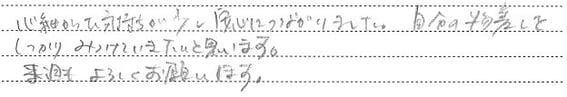 心細かった気持ちが少し安心につながりました。自分の物差しを
しっかりみつけていきたいと思います。
来週もよろしくお願いします。